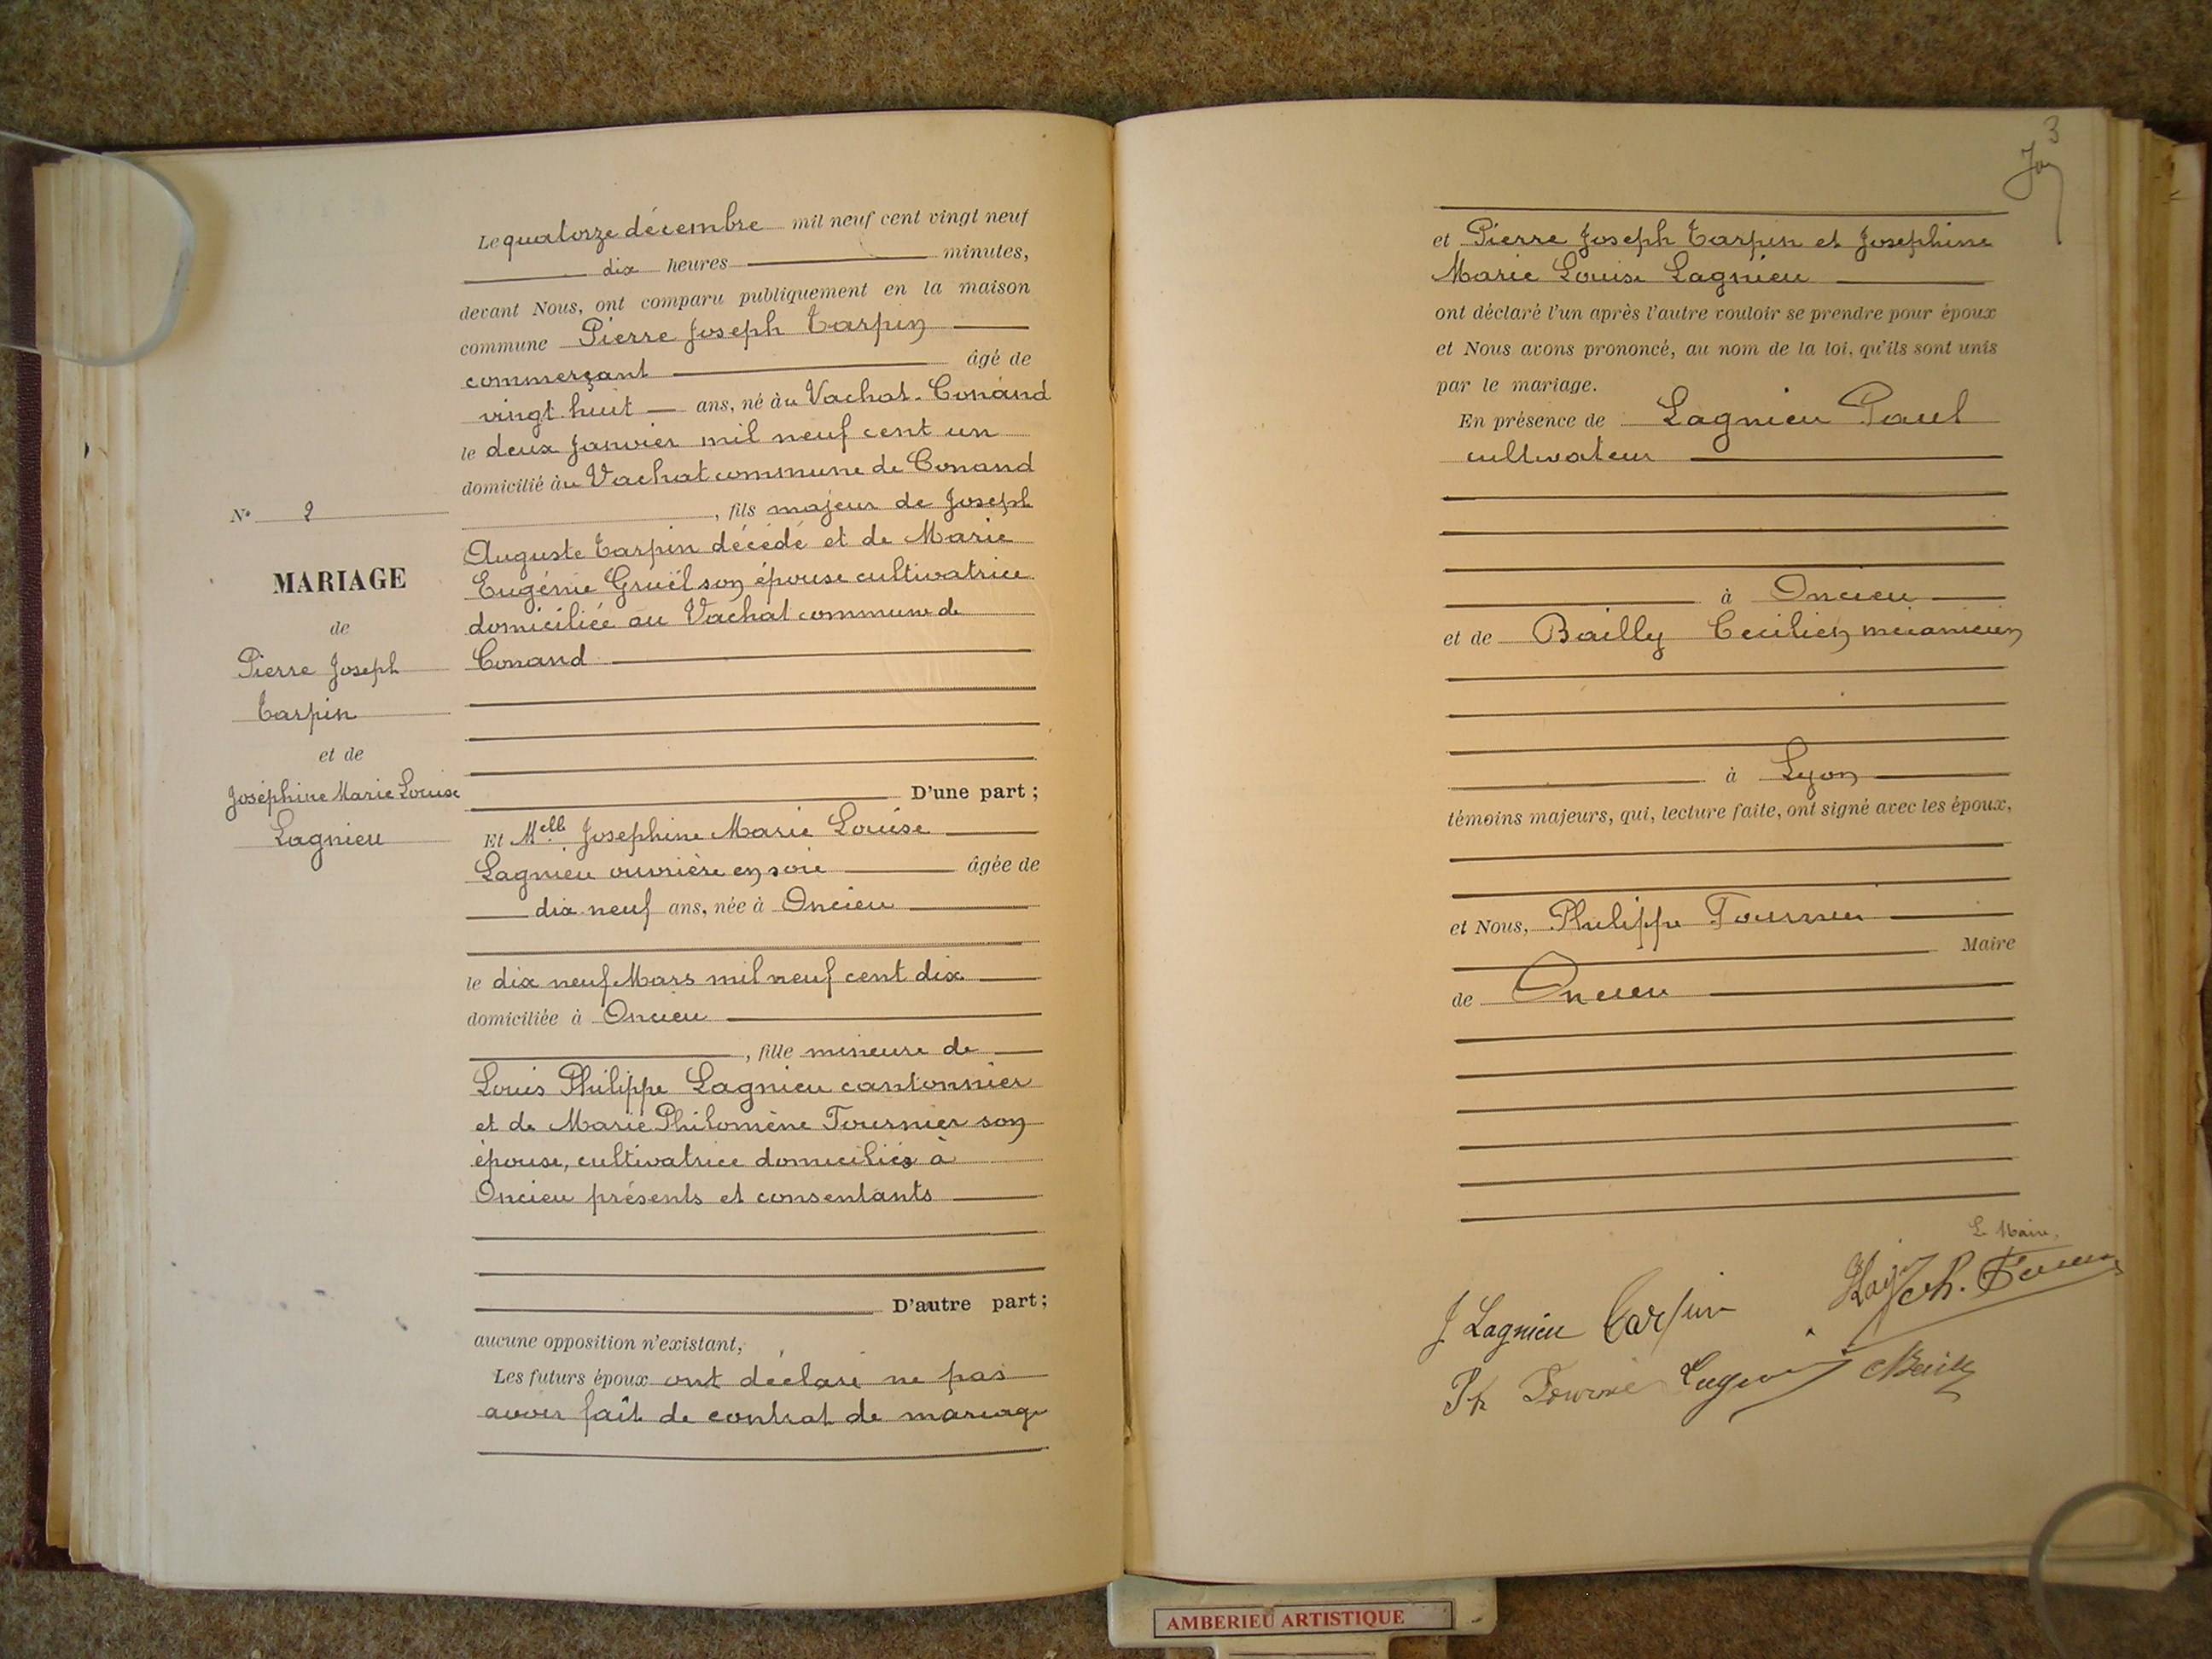 Le quatorze décembre mil neuf cent vingt neuf
dix heures minutes,
devant Nous, ont comparu publiquement en la maison
commune Pierre Joseph Tarpin
commerçant âgé de
vingt huit ans, né àu Vachat. Conand
le deux Janvier mil neuf cent un
domicilié àu Vachat commune de Conand
, fils majeur de Joseph
Auguste Tarpin décédé et de Marie
Eugénie Gruël son épouse cultivatrice
domiciliée au Vachat commune de
Conand
D'une part ;
Et Melle Josephine Marie Louise
Lagnieu ouvrière en soie âgée de
dix neuf ans, née à Oncieu
le dix neuf Mars mil neuf cent dix
domiciliée à Oncieu
, fille mineure de
Louis Philippe Lagnieu cantonnier
et de Marie Philomène Tournier son
épouse, cultivatrice domiciliés à
Oncieu présents et consentants
D'autre part ;
aucune opposition n'existant,
Les futurs époux ont déclaré ne pas
avoir fait de contrat de mariage
N° 2
MARIAGE
de
Pierre Joseph
Tarpin
et de
Joséphine Marie Louise
Lagnieu
3
et Pierre Joseph Tarpin et Josephine
Marie Louise Lagnieu
ont déclaré l'un après l'autre vouloir se prendre pour époux
et Nous avons prononcé, au nom de la loi, qu'ils sont unis
par le mariage.
En présence de Lagnieu Paul
cultivateur
à Oncieu
et de Bailly Cecilien mécanicien
à Lyon
témoins majeurs, qui, lecture faite, ont signé avec les époux,
et Nous, Philippe Tournier
Maire
de Oncieu
Le Maire,
J Lagnieu Tarpin
AMBERIEU ARTISTIQUE